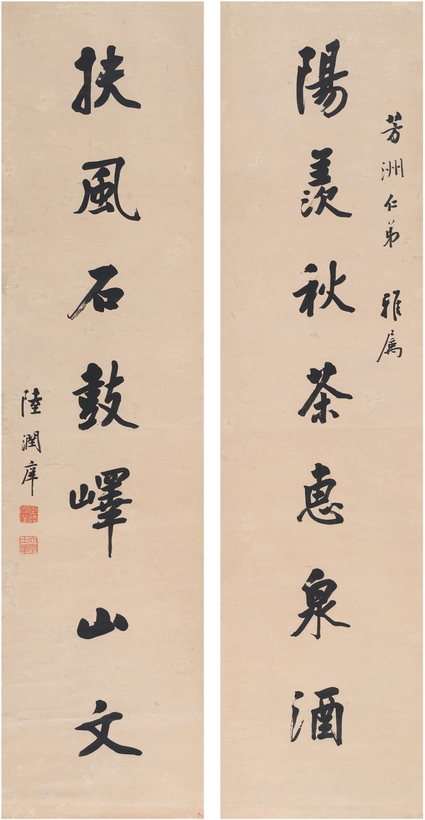 芳洲仁弟 雅属
陽羨秋茶恵泉酒
扶風石鼓嶧山文
陸潤庠